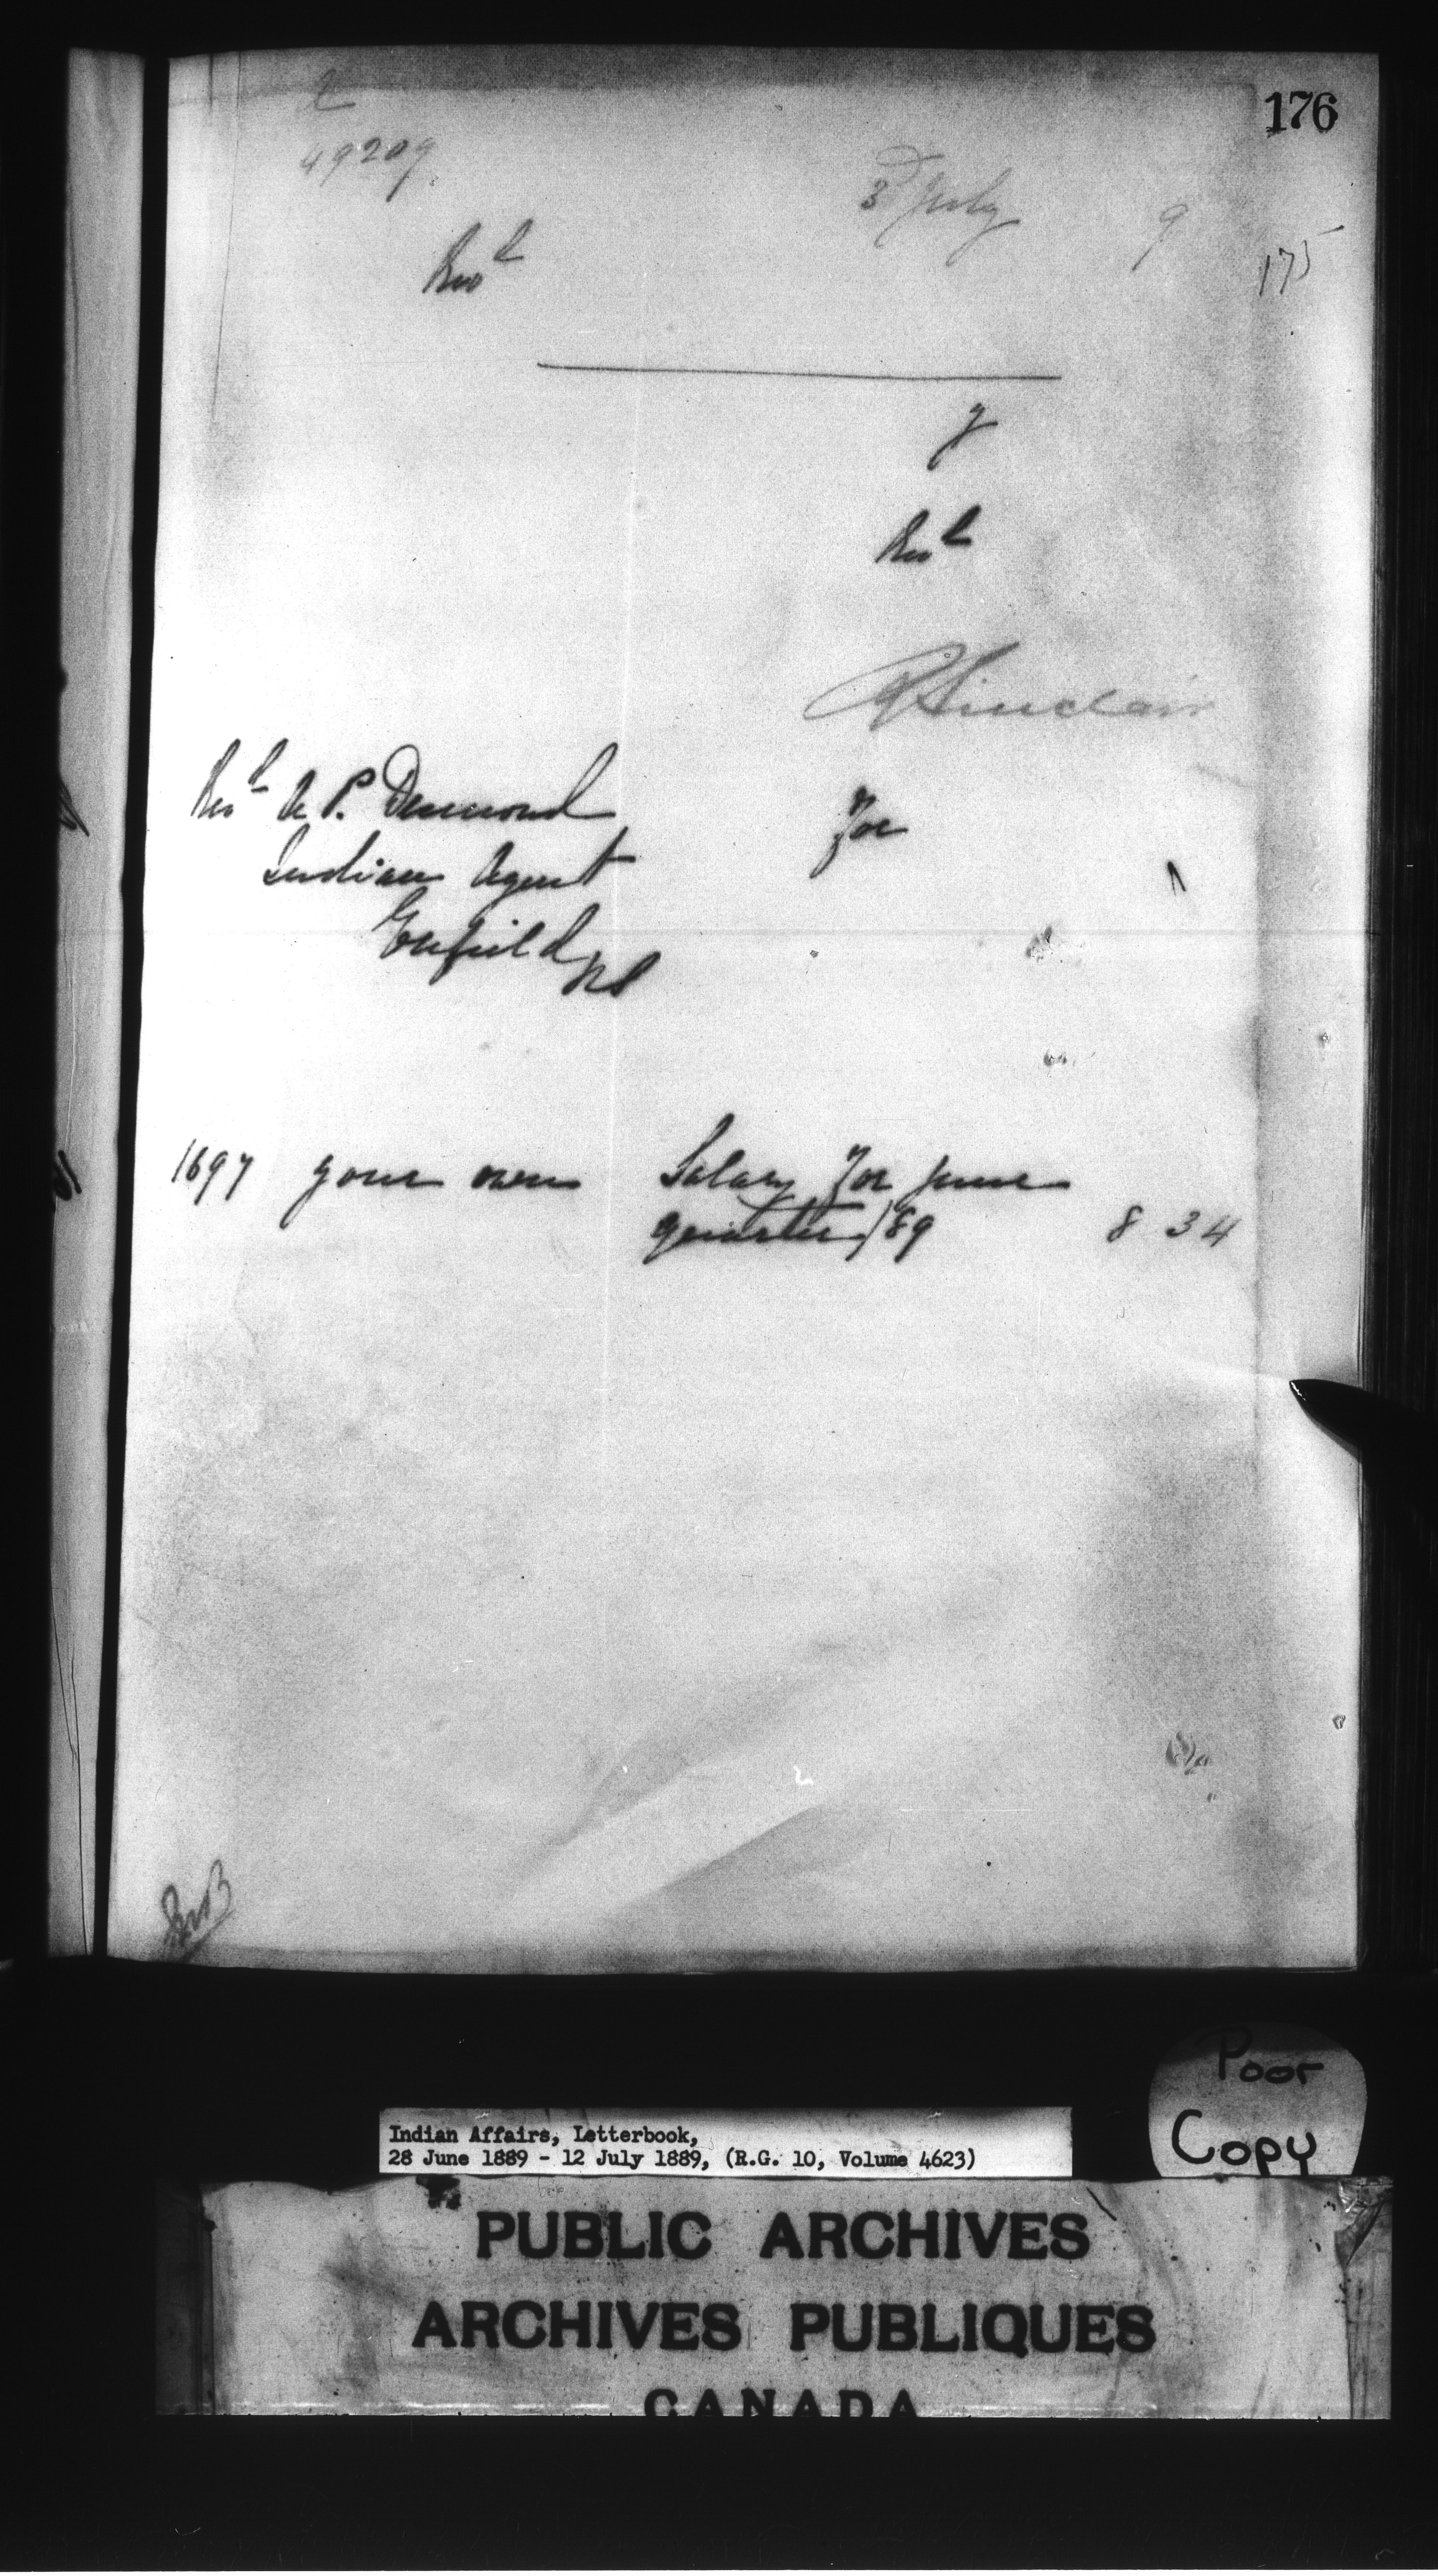 176
L
49209
3d July 9
175
Revd
y
Revd
R Sinclair
Revd A P. Desmond
for
Indian Agent
Enfield
NS
1697 your own Salary for June
quarter/89 8 34
Poor
Copy
Indian Affairs, Letterbook,
28 June 1889 - 12 July 1889, (R.G. 10, Volume 4623)
PUBLIC ARCHIVES
ARCHIVES PUBLIQUES
CANADA